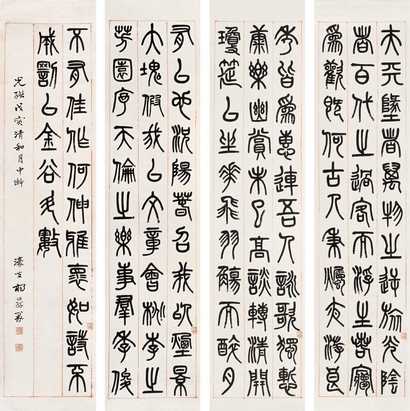 夫天地者萬物之逆旅光陰
者百代之過客而浮生若夢
為歡幾何古人秉燭夜遊良
有以也況陽春召我以煙景
大塊假我以文章會桃李之
芳園序天倫之樂事群季俊
秀皆為惠連吾人詠歌獨慚
康樂幽賞未已高談轉清開
瓊筵以坐花飛羽觴而醉月
不有佳作何伸雅懷如詩不
成罰以金谷酒數
光緒戊寅清和月中澣
濠叟楊沂孫